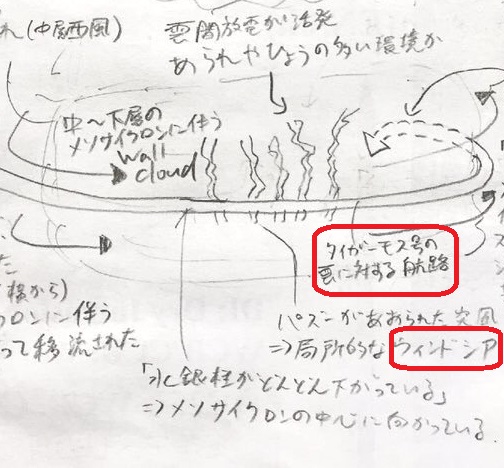 れ(中層西風)
雲間放電が活発
あられやひょうの多い環境か
中〜下層の
メソサイクロンに伴う
wall
cloud
タイガーモス号の
雲に対する航路
た
様から)
クロンに伴う
って移流された
パズーがあおられた突風
⇒局所的なウィンドシア
「水銀柱がどんどん下がっている」
⇒メソサイクロンの中心に向かっている